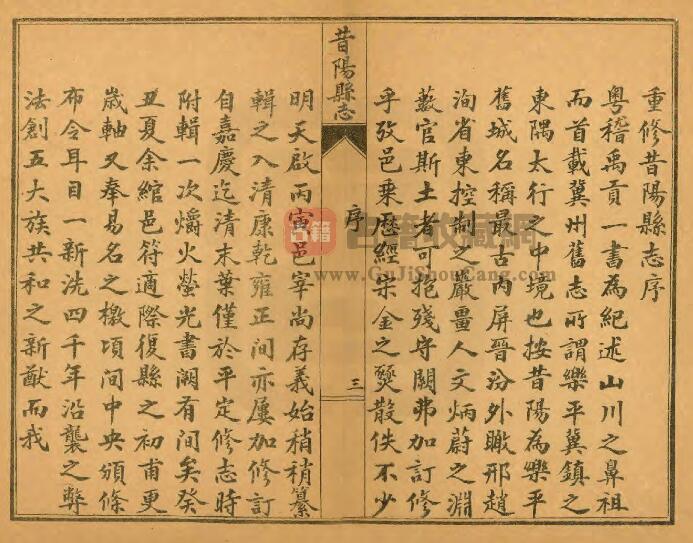 重修昔陽縣志序
粤稽禹貢一書為紀述山川之鼻祖
而首載冀州舊志所謂樂平冀鎮之
東隅太行之中境也按昔陽為樂平
舊城名稱最古內屏晉汾外瞰邢趙
洵省東控制之嚴畺人文炳蔚之淵
藪官斯土者可抱殘守闕弗加訂修
乎攷邑乗歷經宋金之燹散佚不少
昔陽縣志
序
三
明天啟丙寅邑宰尚存義始稍稍纂
輯之入清康乾雍正間亦屢加修訂
自嘉慶迄清末葉僅於平定修志時
附輯一次爝火螢光書闕有間矣癸
丑夏余綰邑符適際復縣之初甫更
歲軸又奉易名之檄頃間中央頒條
布令耳目一新洗四千年沿襲之弊
法創五大族共和之新猷而我
古籍收藏網
www.GuJiShouCang.com
古籍